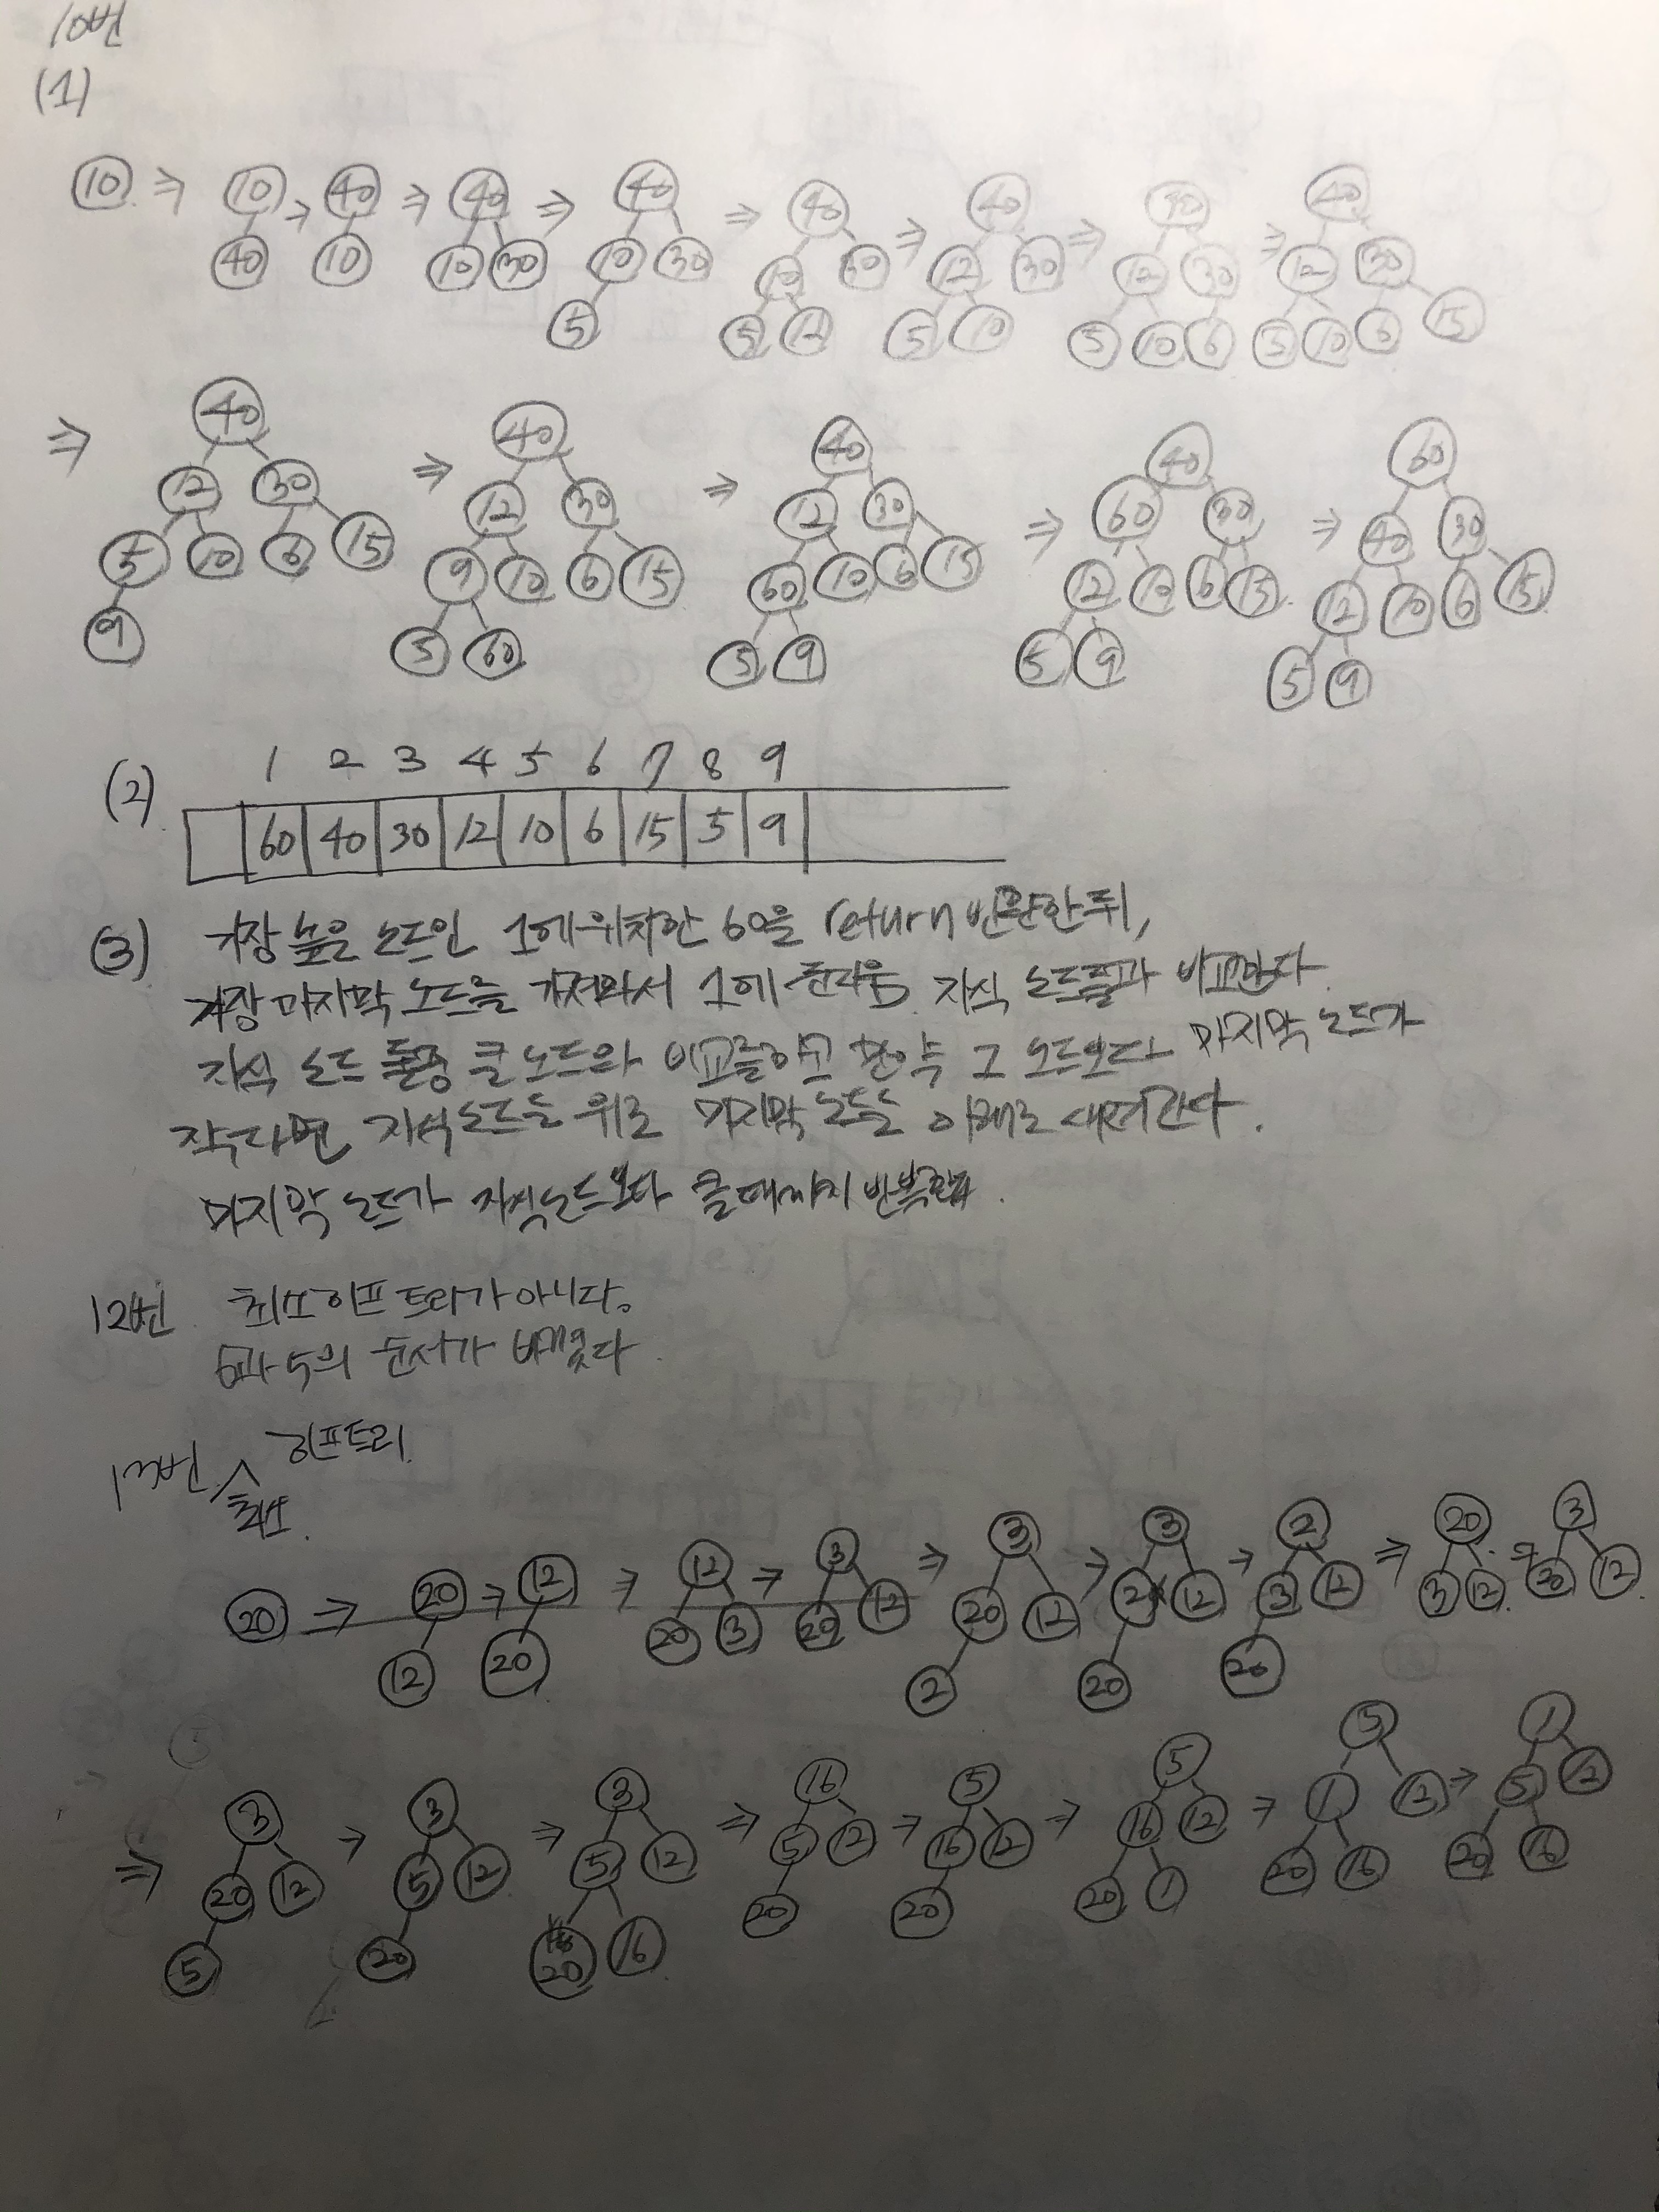 10번
(1)
10 ⇒ 10 40 → 40 10 ⇒ 40 10 30 ⇒ 40 10 30 5 ⇒ 40 10 30 5 12 ⇒ 40 12 30 5 10 ⇒ 40 12 30 5 10 6 ⇒ 40 12 30 5 10 6 15
⇒ 40 12 30 5 10 6 15 9 ⇒ 40 12 30 9 10 6 15 5 60 ⇒ 40 12 30 60 10 6 15 5 9 ⇒ 40 60 30 12 10 6 15 5 9 ⇒ 60 40 30 12 10 6 15 5 9
1 2 3 4 5 6 7 8 9
(2) 60 40 30 12 10 6 15 5 9
(3) 가장 높은 노드인 1에 위치한 60을 return 반환한 뒤,
가장 마지막 노드를 가져와서 1에 둔다음 자식 노드들과 비교한다
자식 노드 둘중 큰 노드와 비교를하고 만약 그 노드보다 마지막 노드가
작다면 자식노드는 위로 마지막 노드는 아래로 내려간다.
마지막 노드가 자식노드보다 클때까지 반복한다.
12번 최소히프 트리가 아니다.
6과 5의 순서가 바뀌었다.
13번 최소 히프트리.
20 ⇒ 20 12 → 12 20 → 12 20 3 → 3 20 12 ⇒ 3 20 12 2 → 3 2 12 20 → 2 3 12 20 ⇒ 20 3 12 ⇒ 3 20 12
⇒ 3 20 12 5 → 3 5 12 20 ⇒ 3 5 12 20 16 ⇒ 16 5 12 20 → 5 16 12 20 ⇒ 5 16 12 20 1 → 5 1 12 20 16 → 1 5 12 20 16